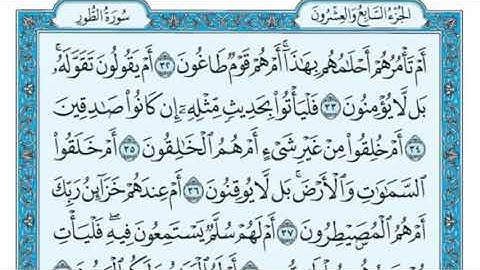 الجزء السابع والعشرون
سورة الطور
أَمْ تَأْمُرُهُمْ أَحْلَٰمُهُم بِهَٰذَآ ۚ أَمْ هُمْ قَوْمٌ طَاغُونَ ٣٢ أَمْ يَقُولُونَ تَقَوَّلَهُۥ ۚ
بَل لَّا يُؤْمِنُونَ ٣٣ فَلْيَأْتُوا۟ بِحَدِيثٍ مِّثْلِهِۦٓ إِن كَانُوا۟ صَٰدِقِينَ
٣٤ أَمْ خُلِقُوا۟ مِنْ غَيْرِ شَىْءٍ أَمْ هُمُ ٱلْخَٰلِقُونَ ٣٥ أَمْ خَلَقُوا۟
ٱلسَّمَٰوَٰتِ وَٱلْأَرْضَ ۚ بَل لَّا يُوقِنُونَ ٣٦ أَمْ عِندَهُمْ خَزَآئِنُ رَبِّكَ
أَمْ هُمُ ٱلْمُصَۣيْطِرُونَ ٣٧ أَمْ لَهُمْ سُلَّمٌ يَسْتَمِعُونَ فِيهِ ۖ فَلْيَأْتِ